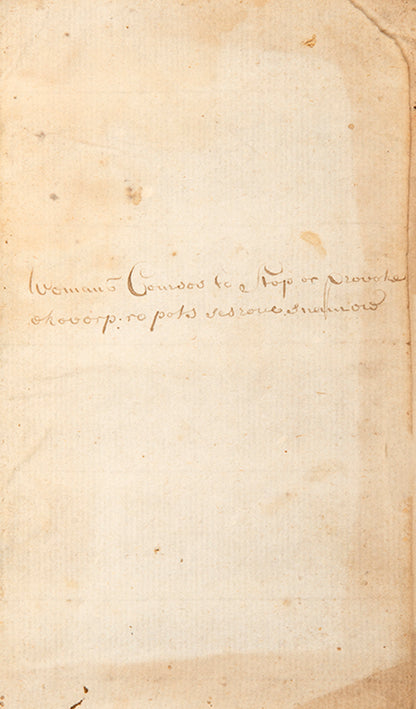 Womans Courses to Stop or Provoke
ekovorp ro pots sesruoc snamow